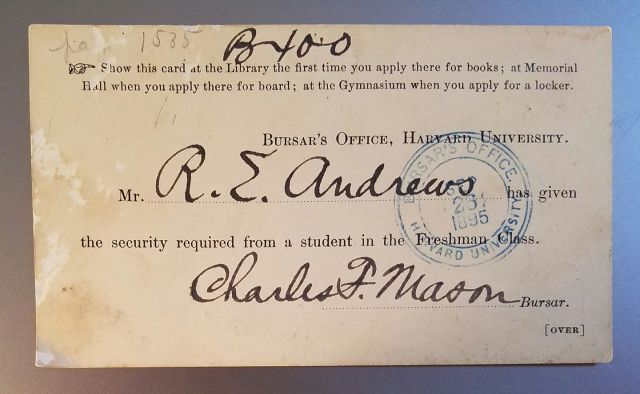 1535
B400
☞ Show this card at the Library the first time you apply there for books; at Memorial
Hall when you apply there for board; at the Gymnasium when you apply for a locker.
BURSAR'S OFFICE, HARVARD UNIVERSITY.
Mr. R. E. Andrews has given
the security required from a student in the Freshman Class.
Charles F. Mason Bursar.
[OVER]
BURSAR'S OFFICE,
SEP
23
1895
HARVARD UNIVERSITY